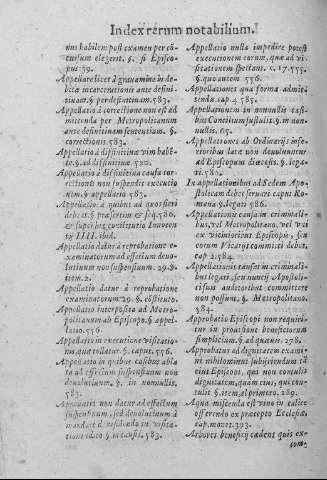 Index rerum notabilium.
um habilem post examen per cō
cursum elegerit. §. si Episco-
pus 39.
Appellare licet à gravamine in de-
bitæ incarcerationis ante defini-
tivam. § per definitivam. 583.
Appellatio à correctione non est ad
mittenda per Metropolitanum
ante definitivam sententiam. §.
correctionis 583.
Appellatio à diffinitiva vim habe-
te. §. ad diffinitivā. 580.
Appellatio à diffinitiva causa cor-
rectionis non suspendit executio
nem, § appellatio 583.
Appellatio à quibus ad quos fieri
debeat. § præsertim & seq. 586.
& super hoc constitutio Innocen
tij IIII. ibid.
Appellatio datur à reprobatione e-
xaminatorum ad effectum devo-
lutivum non suspensivum. 29. §.
item. 2.
Appellatio datur à reprobatione
examinatorum 29. §. cōstituto.
Appellatio interposita ad Metro-
politanum ab Episcopo. § appel-
latio. 556.
Appellatio in executione visitatio-
nis, quā tollatur. §. caput. 556.
Appellatio in quibus casibus abla
ta ad effectum suspensivum non
devolutivum. §. in nonnullis.
583.
Appellatio non datur ad effectum
suspensivum, sed devolutivum à
mandato de residendo in visita-
tione edito § in causis. 583.
Appellatio nulla impedire potest
executionem eorum, quæ ad vi-
sitationem spectant. c. 17. 555.
§. quo autem 556.
Appellationes qua forma admit-
tenda. cap. 4 585.
Appellationem in nonnullis casi-
bus Concilium sustulit. §. in non-
nullis. 65.
Appellationes ab Ordinarijs infe-
rioribus lata non devolvuntur
ad Episcopum diœcesis. §. lega-
ti 580.
In appellationibus ad Sedem Apo-
stolicam debet servari caput Ro-
mana §. legati 586.
Appellationis causa in criminali-
bus, vel Metropolitano, vel vni
ex vicinioribus Episcopis, seu
eorum Vicarijs committi debet,
cap 2. 584.
Appellationis causam in criminali-
bus legati, seu nuncij Apostoli-
ci suis auditoribus committere
non possunt. §. Metropolitano.
584.
Approbatio Episcopi non requiri-
tur in provisione beneficiorum
simplicium. § ad quænis. 278.
Approbatus ad dignitatem exami-
ni nihilominus subijciendum tā
eius Episcopi, qui non contulit
dignitatem, quàm eius, qui con-
tulit. §. item, à l primero. 289.
Aqua miscenda est vino in calice
offerendo ex præcepto Ecclesiæ.
cap. monet. 393.
Arbores beneficij cædent quis ex-
com-